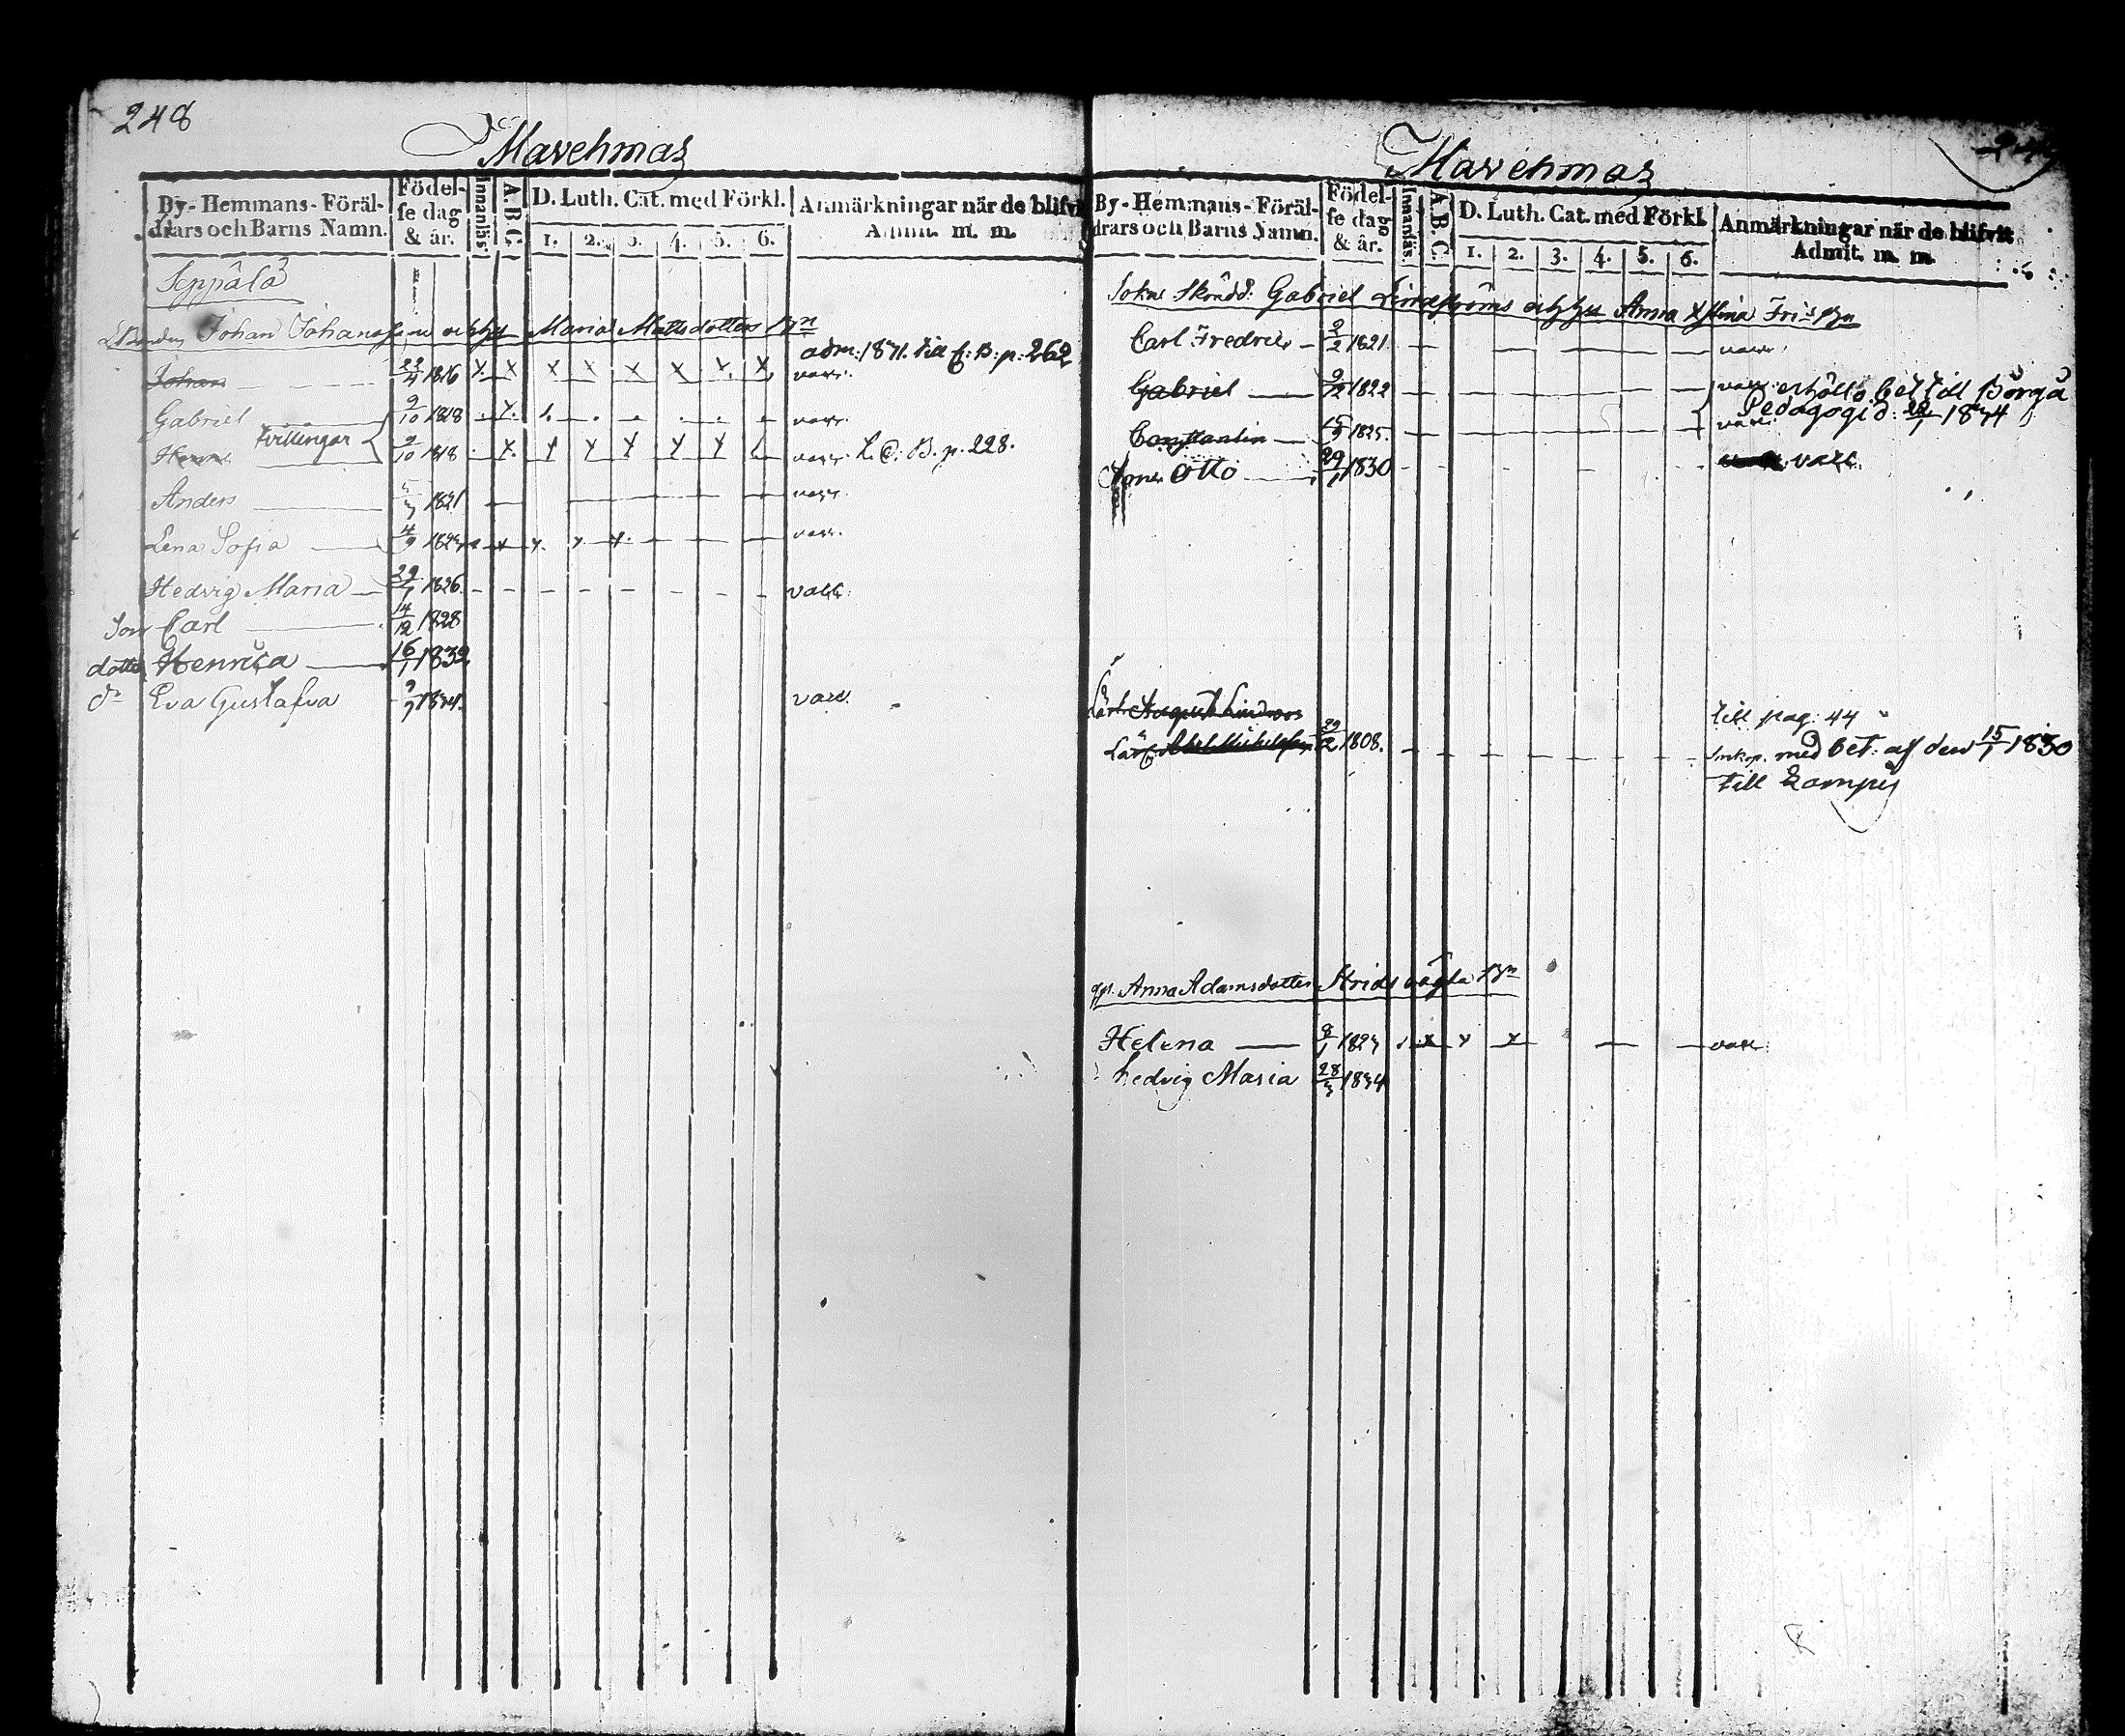 248
Marehmas
By-Hemmans-Föräl-
drars och Barns Namn.
Födel-
se dag
& år.
Innanläs.
A.B.C.
D. Luth. Cat. med Förkl.
1. 2. 3. 4. 5. 6.
Anmärkningar när de blifvit
Admit. m. m.
Seppälä
Johan Johansson och hu Maria Mattsdotters Bn
Johan 22/4 1816 x. x x x x x x x adm: 1831. till C: B: p: 262
Gabriel 9/10 1818 varr.
tvillingar
9/10 1818 x x x x x varr. L. C. B. p. 228.
Anders 1821 varr.
Lena Sofia 4/9 1823 x x x x varr.
Hedvig Maria 29/1 1826 varr.
Son Carl 14/12 1828
dotter Henrica 16/1 1832
dr Eva Gustafva 1834. varr.
Marehmas
By-Hemmans-Föräl-
drars och Barns Namn.
Födel-
se dag
& år.
Innanläs.
A.B.C.
D. Luth. Cat. med Förkl.
1. 2. 3. 4. 5. 6.
Anmärkningar när de blifvit
Admit. m. m.
Sokne Skrädd: Gabriel Lindströms och hu Anna Stina Bn
Carl Fredric 2/2 1821 varr.
Gabriel 9/12 1822 varr. erhöllo bet till Borgå
Constantin 1825. varr. Pedagogi d: 1834
Son Otto 29/1 1830 varr.
Lärl. August Lindroos till pag: 44
Lärl. 1808. Inkop. med bet: af den 15/1 1830
till
Anna Adamsdotter Bn
Helena 1823 x x x varr.
hedvig Maria 28/3 1834